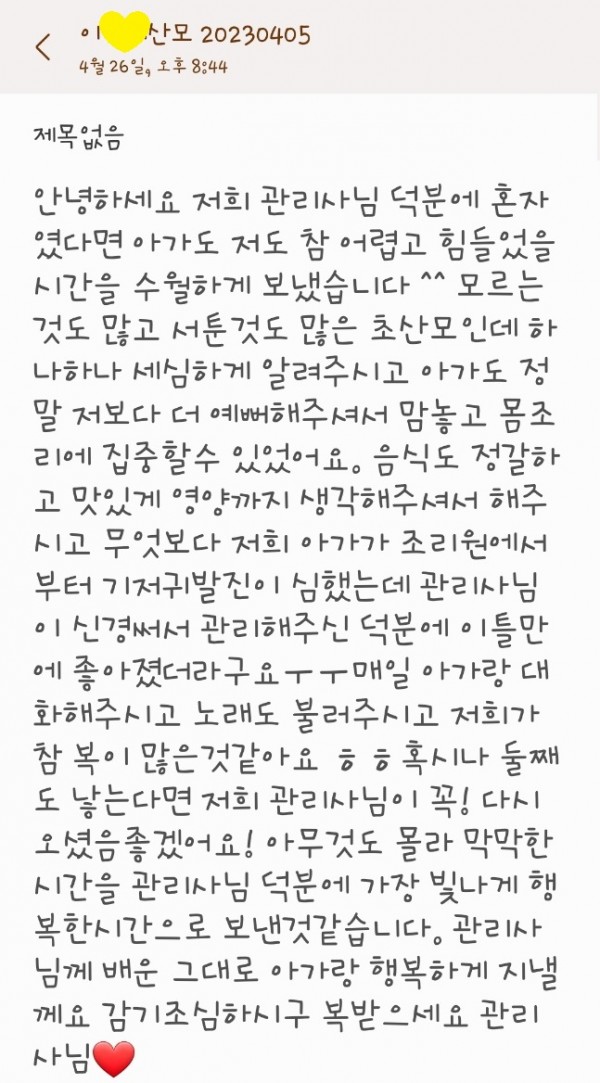 이 산모 20230405
4월 26일, 오후 8:44
제목없음
안녕하세요 저희 관리사님 덕분에 혼자
였다면 아가도 저도 참 어렵고 힘들었을
시간을 수월하게 보냈습니다 ^^ 모르는
것도 많고 서툰것도 많은 초산모인데 하
나하나 세심하게 알려주시고 아가도 정
말 저보다 더 예뻐해주셔서 맘놓고 몸조
리에 집중할수 있었어요. 음식도 정갈하
고 맛있게 영양까지 생각해주셔서 해주
시고 무엇보다 저희 아가가 조리원에서
부터 기저귀발진이 심했는데 관리사님
이 신경써서 관리해주신 덕분에 이틀만
에 좋아졌더라구요ㅜㅜ매일 아가랑 대
화해주시고 노래도 불러주시고 저희가
참 복이 많은것같아요 ㅎㅎ혹시나 둘째
도 낳는다면 저희 관리사님이 꼭! 다시
오셨음좋겠어요! 아무것도 몰라 막막한
시간을 관리사님 덕분에 가장 빛나게 행
복한시간으로 보낸것같습니다. 관리사
님께 배운 그대로 아가랑 행복하게 지낼
께요 감기조심하시구 복받으세요 관리
사님❤️